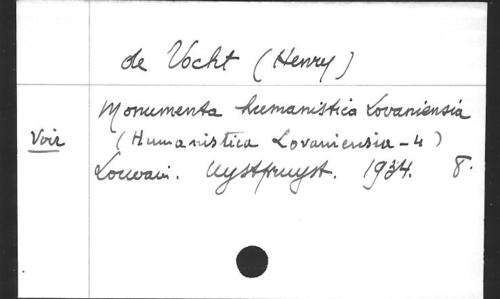 de Vocht (Henry)
Monumenta humanistica Lovaniensia
Voir
(Humanistica Lovaniensia - 4)
Louvain. Uystpruyst. 1934. 8°.